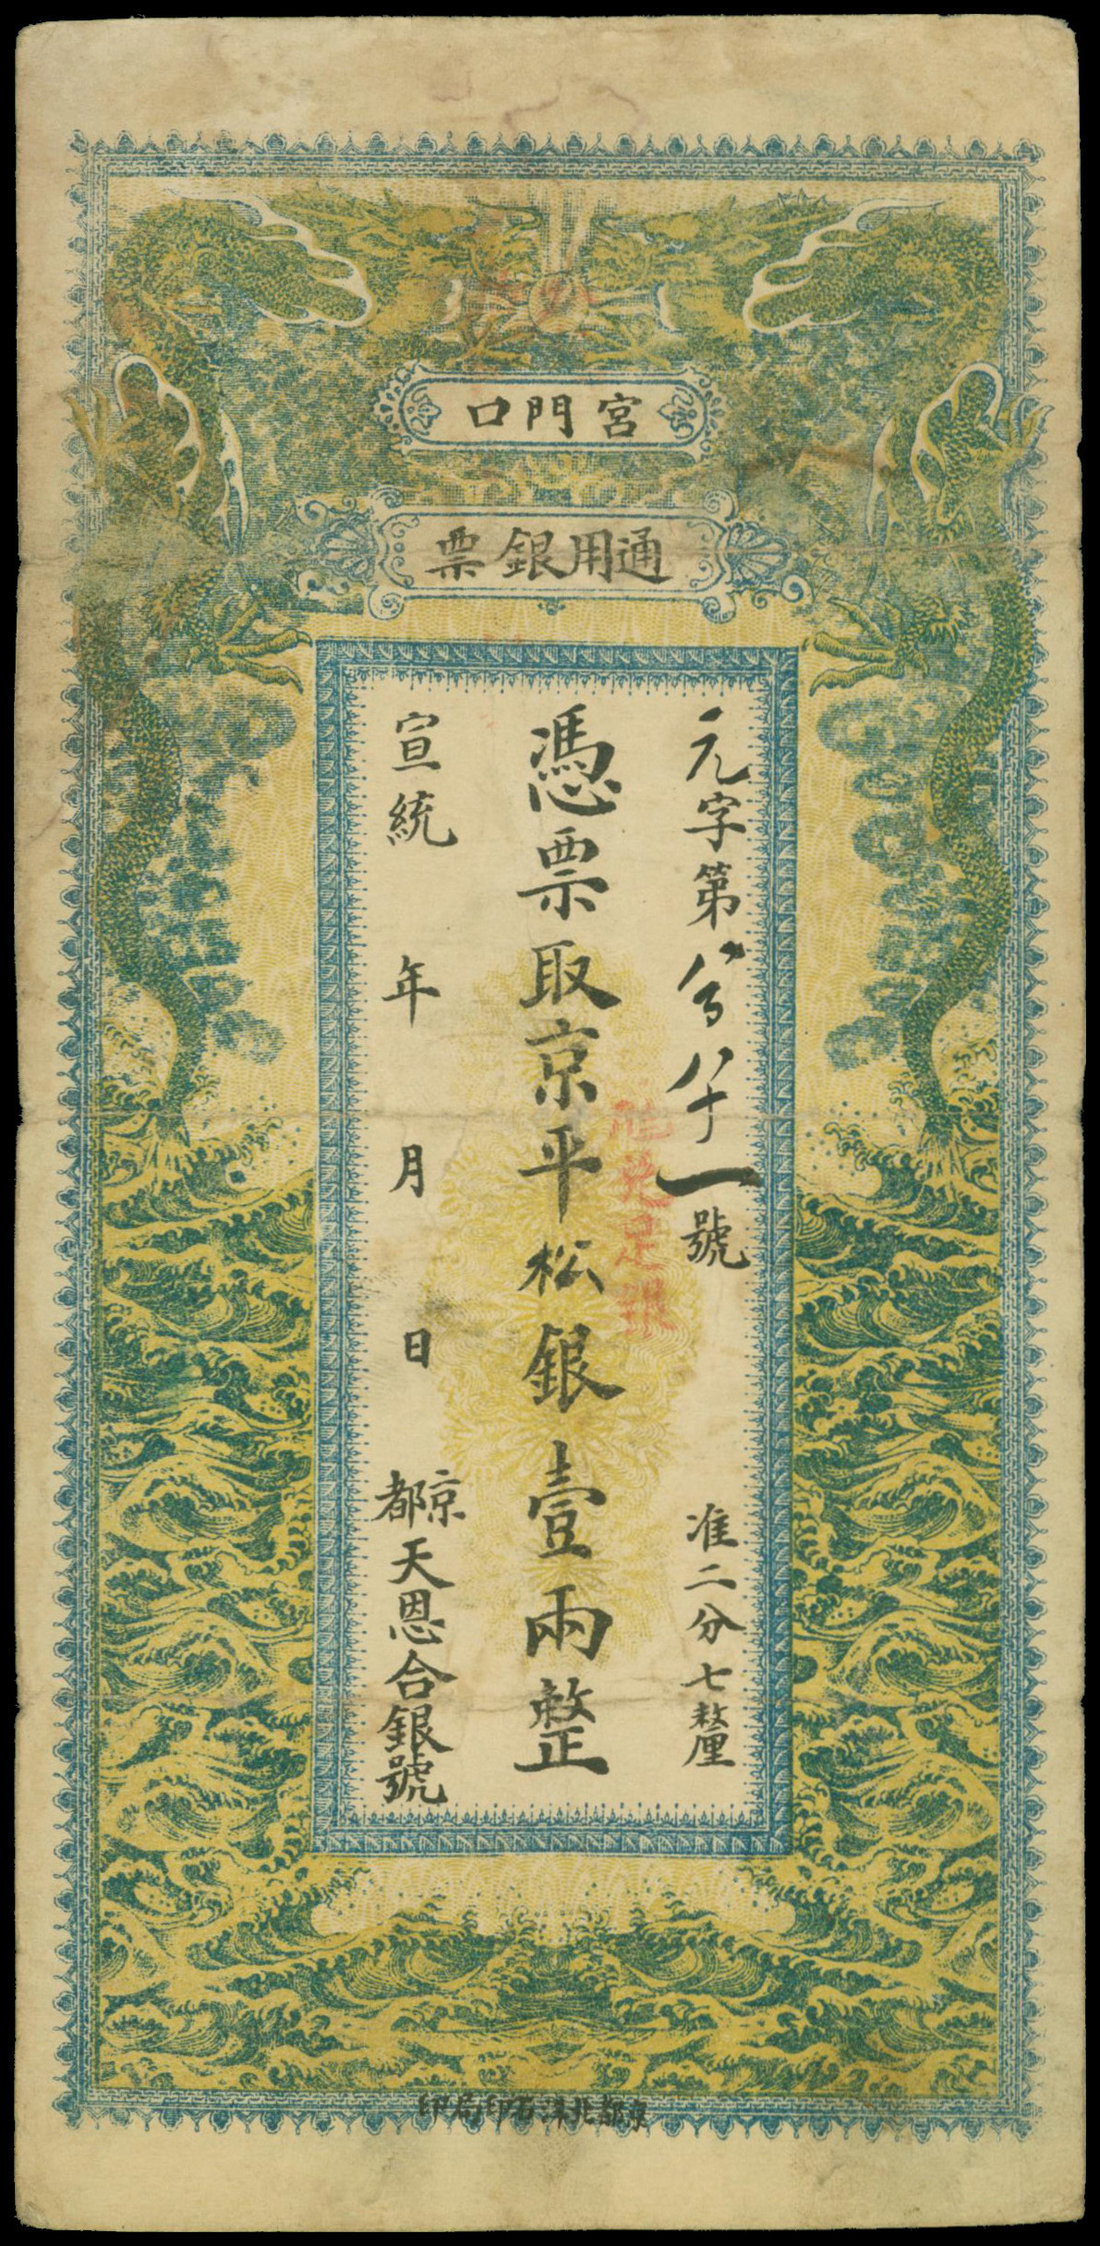 宮門口
通用銀票
元字第
八十一號
准二分七釐
憑票取京平松銀壹兩整
兌足銀
宣統 年 月 日
京都天恩合銀號
京都北洋石印局印